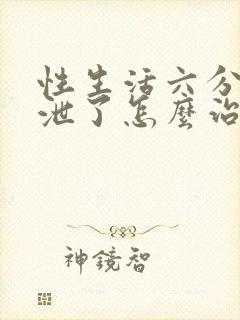 性生活六分
泄了怎麼治
神鏡智